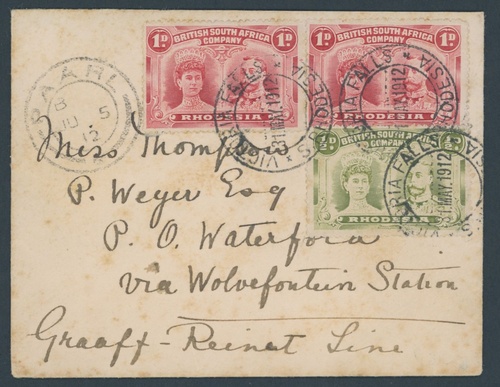 1D BRITISH SOUTH AFRICA COMPANY 1D
RHODESIA
1D BRITISH SOUTH AFRICA COMPANY 1D
RHODESIA
½D BRITISH SOUTH AFRICA COMPANY ½D
RHODESIA
VICTORIA FALLS RHODESIA
31.MAY.1912
PAARL
B
JU 5
12
Miss Thompson
P. Weyer Esq
P. O. Waterford
via Wolvefontein Station
Graaff-Reinet Line